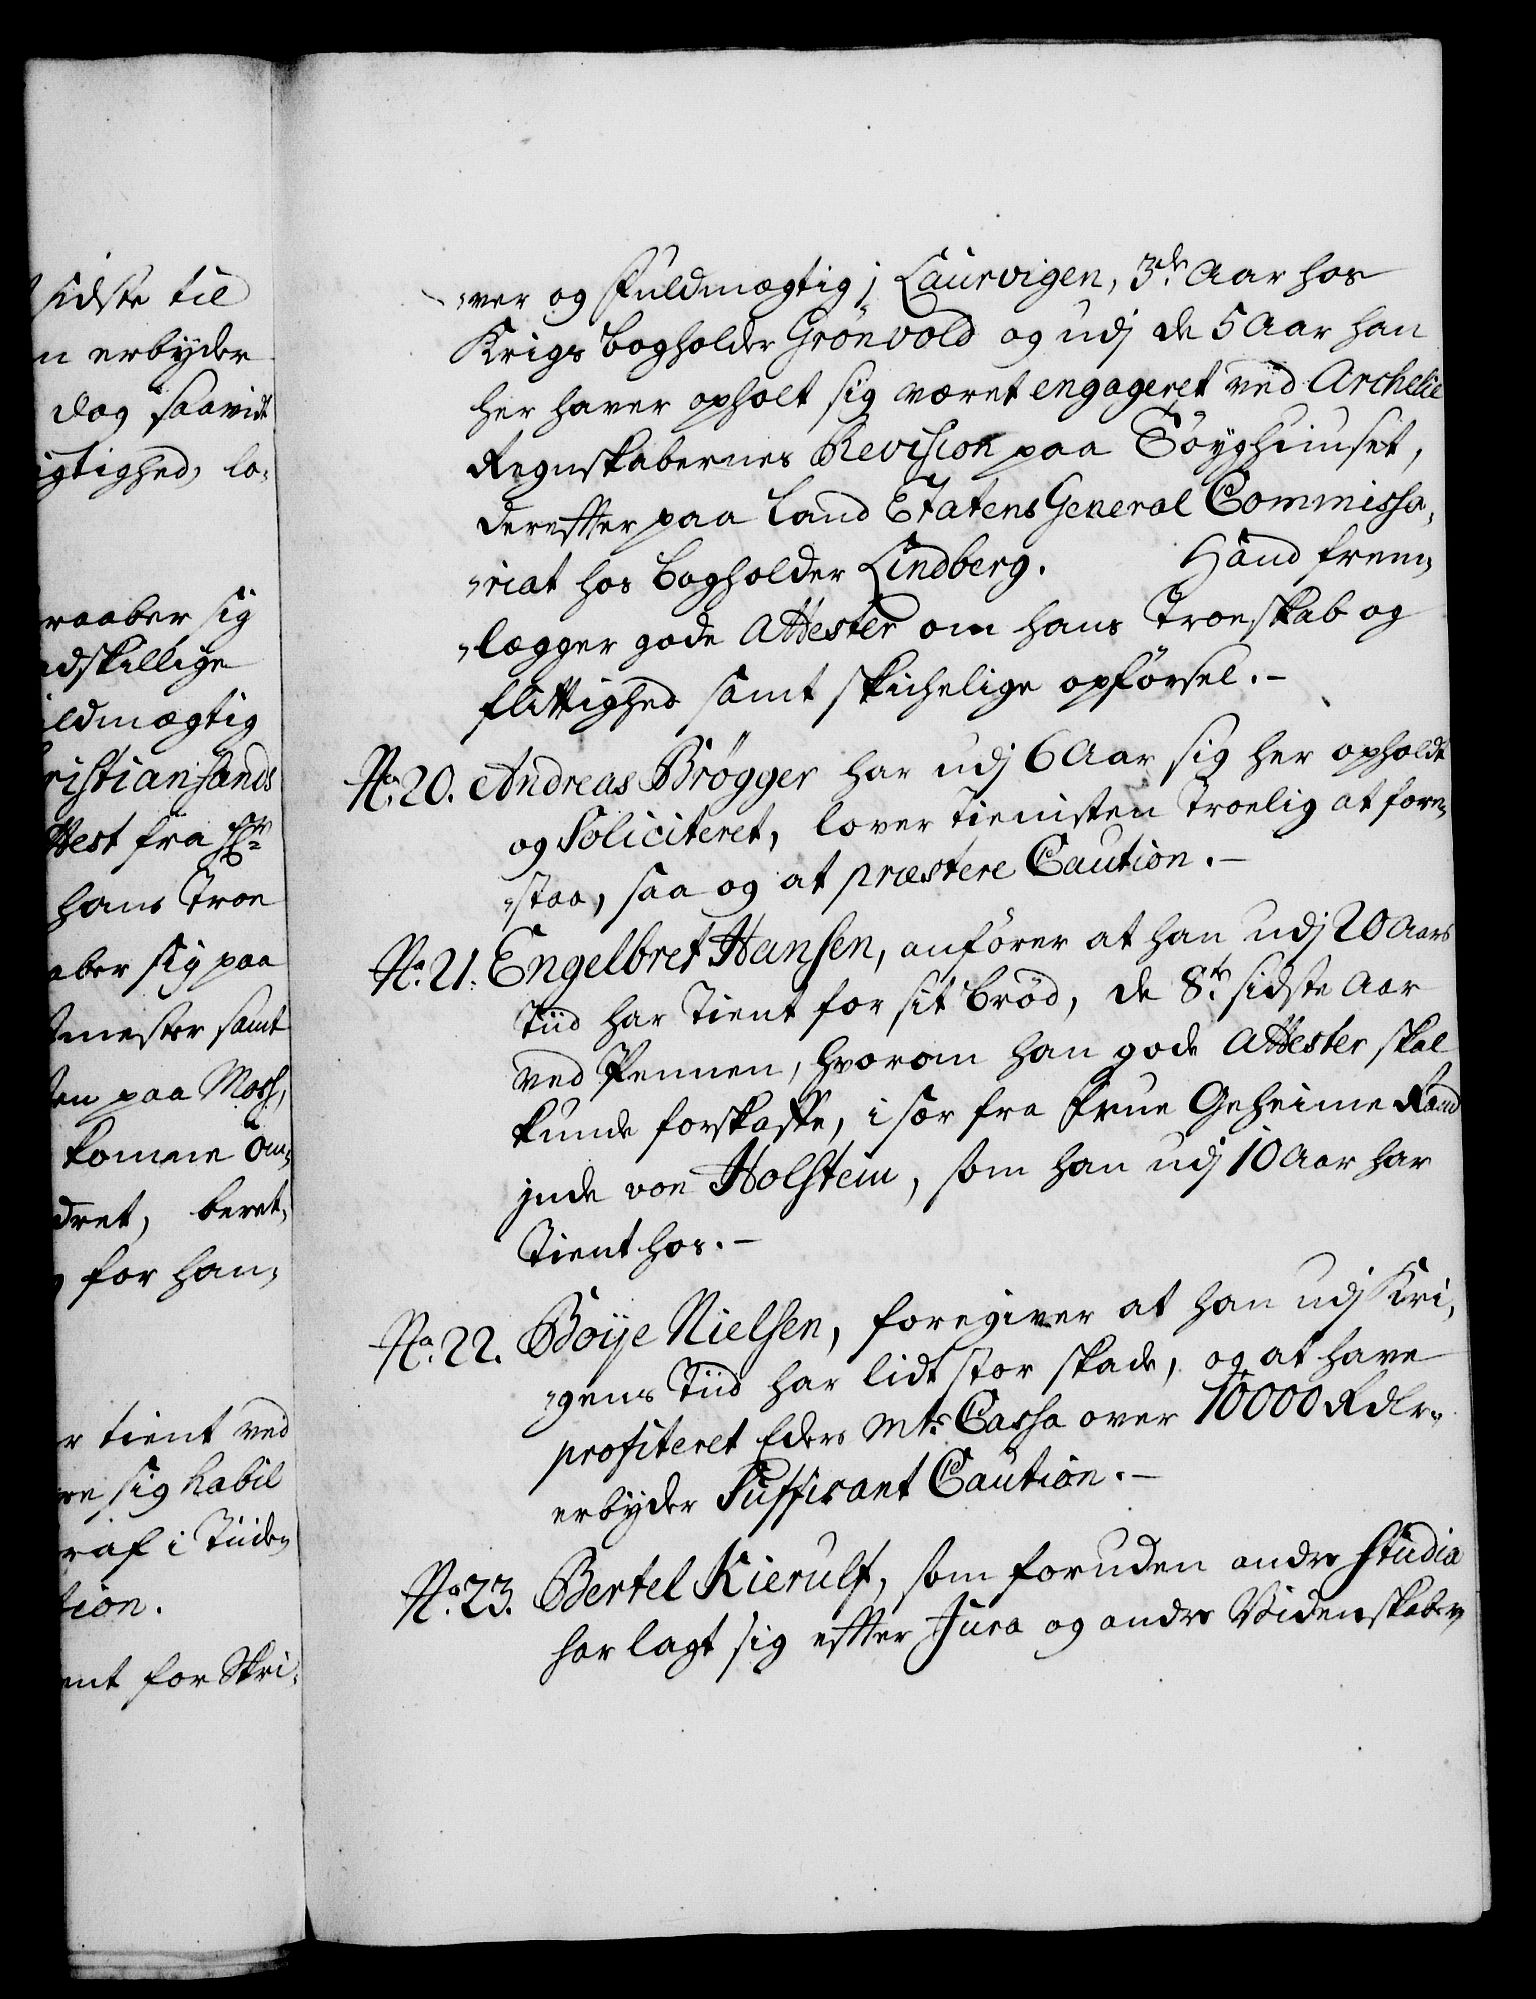 sidste til
n erbyder
dog saavidt
igtighed, lo-
raaber sig
dskillige
ldmægtig
ristiansands
ttest fra Hr
hans Troe
aber sig paa
tmester samt
ten paa Moss,
komme an-
dret, beret-
for han-
r tient ved
re sig habil
raf i Tiiden
tion.
ent for Skri-
-ver og Fuldmægtig i Laurvigen, 3de Aar hos
Krigs bogholder Grönvold og udj de 5 Aar han
her haver opholt sig været engageret ved Archelie
Regnskabernes Revision paa Töyghuuset,
derefter paa Land Etatens General Commissa-
-riat hos bogholder Lindberg. Hand frem-
-lægger gode Attester om hans Troeskab og
flittighed samt skichelige opförsel.-
No. 20. Andreas Brögger har udj 6 Aar sig her opholdt
og Soliciteret, lover tienisten Troelig at fore-
-staa, saa og at præstere Caution.-
No. 21. Engelbret Hansen, anförer at han udj 20 Aars
Tiid har Tient for sit bröd, de 8te sidste Aar
ved Pennen, hvorom han gode Attester skal
kunde forskaffe, i sær fra Frue Geheime Raad
inde von Holstein, som han udj 10 Aar har
Tient hos.-
No. 22. Boije Nielsen, foregiver at han udj Kri-
-gens Tiid har lidt stor skade, og at have
profiteret Eders Mts Cassa over 10000 Rdlr.
erbyder Suffisant Caution.-
No. 23. Bertel Kierulf, som foruden andre Studia
har lagt sig efter Jura og andre Videnskaber